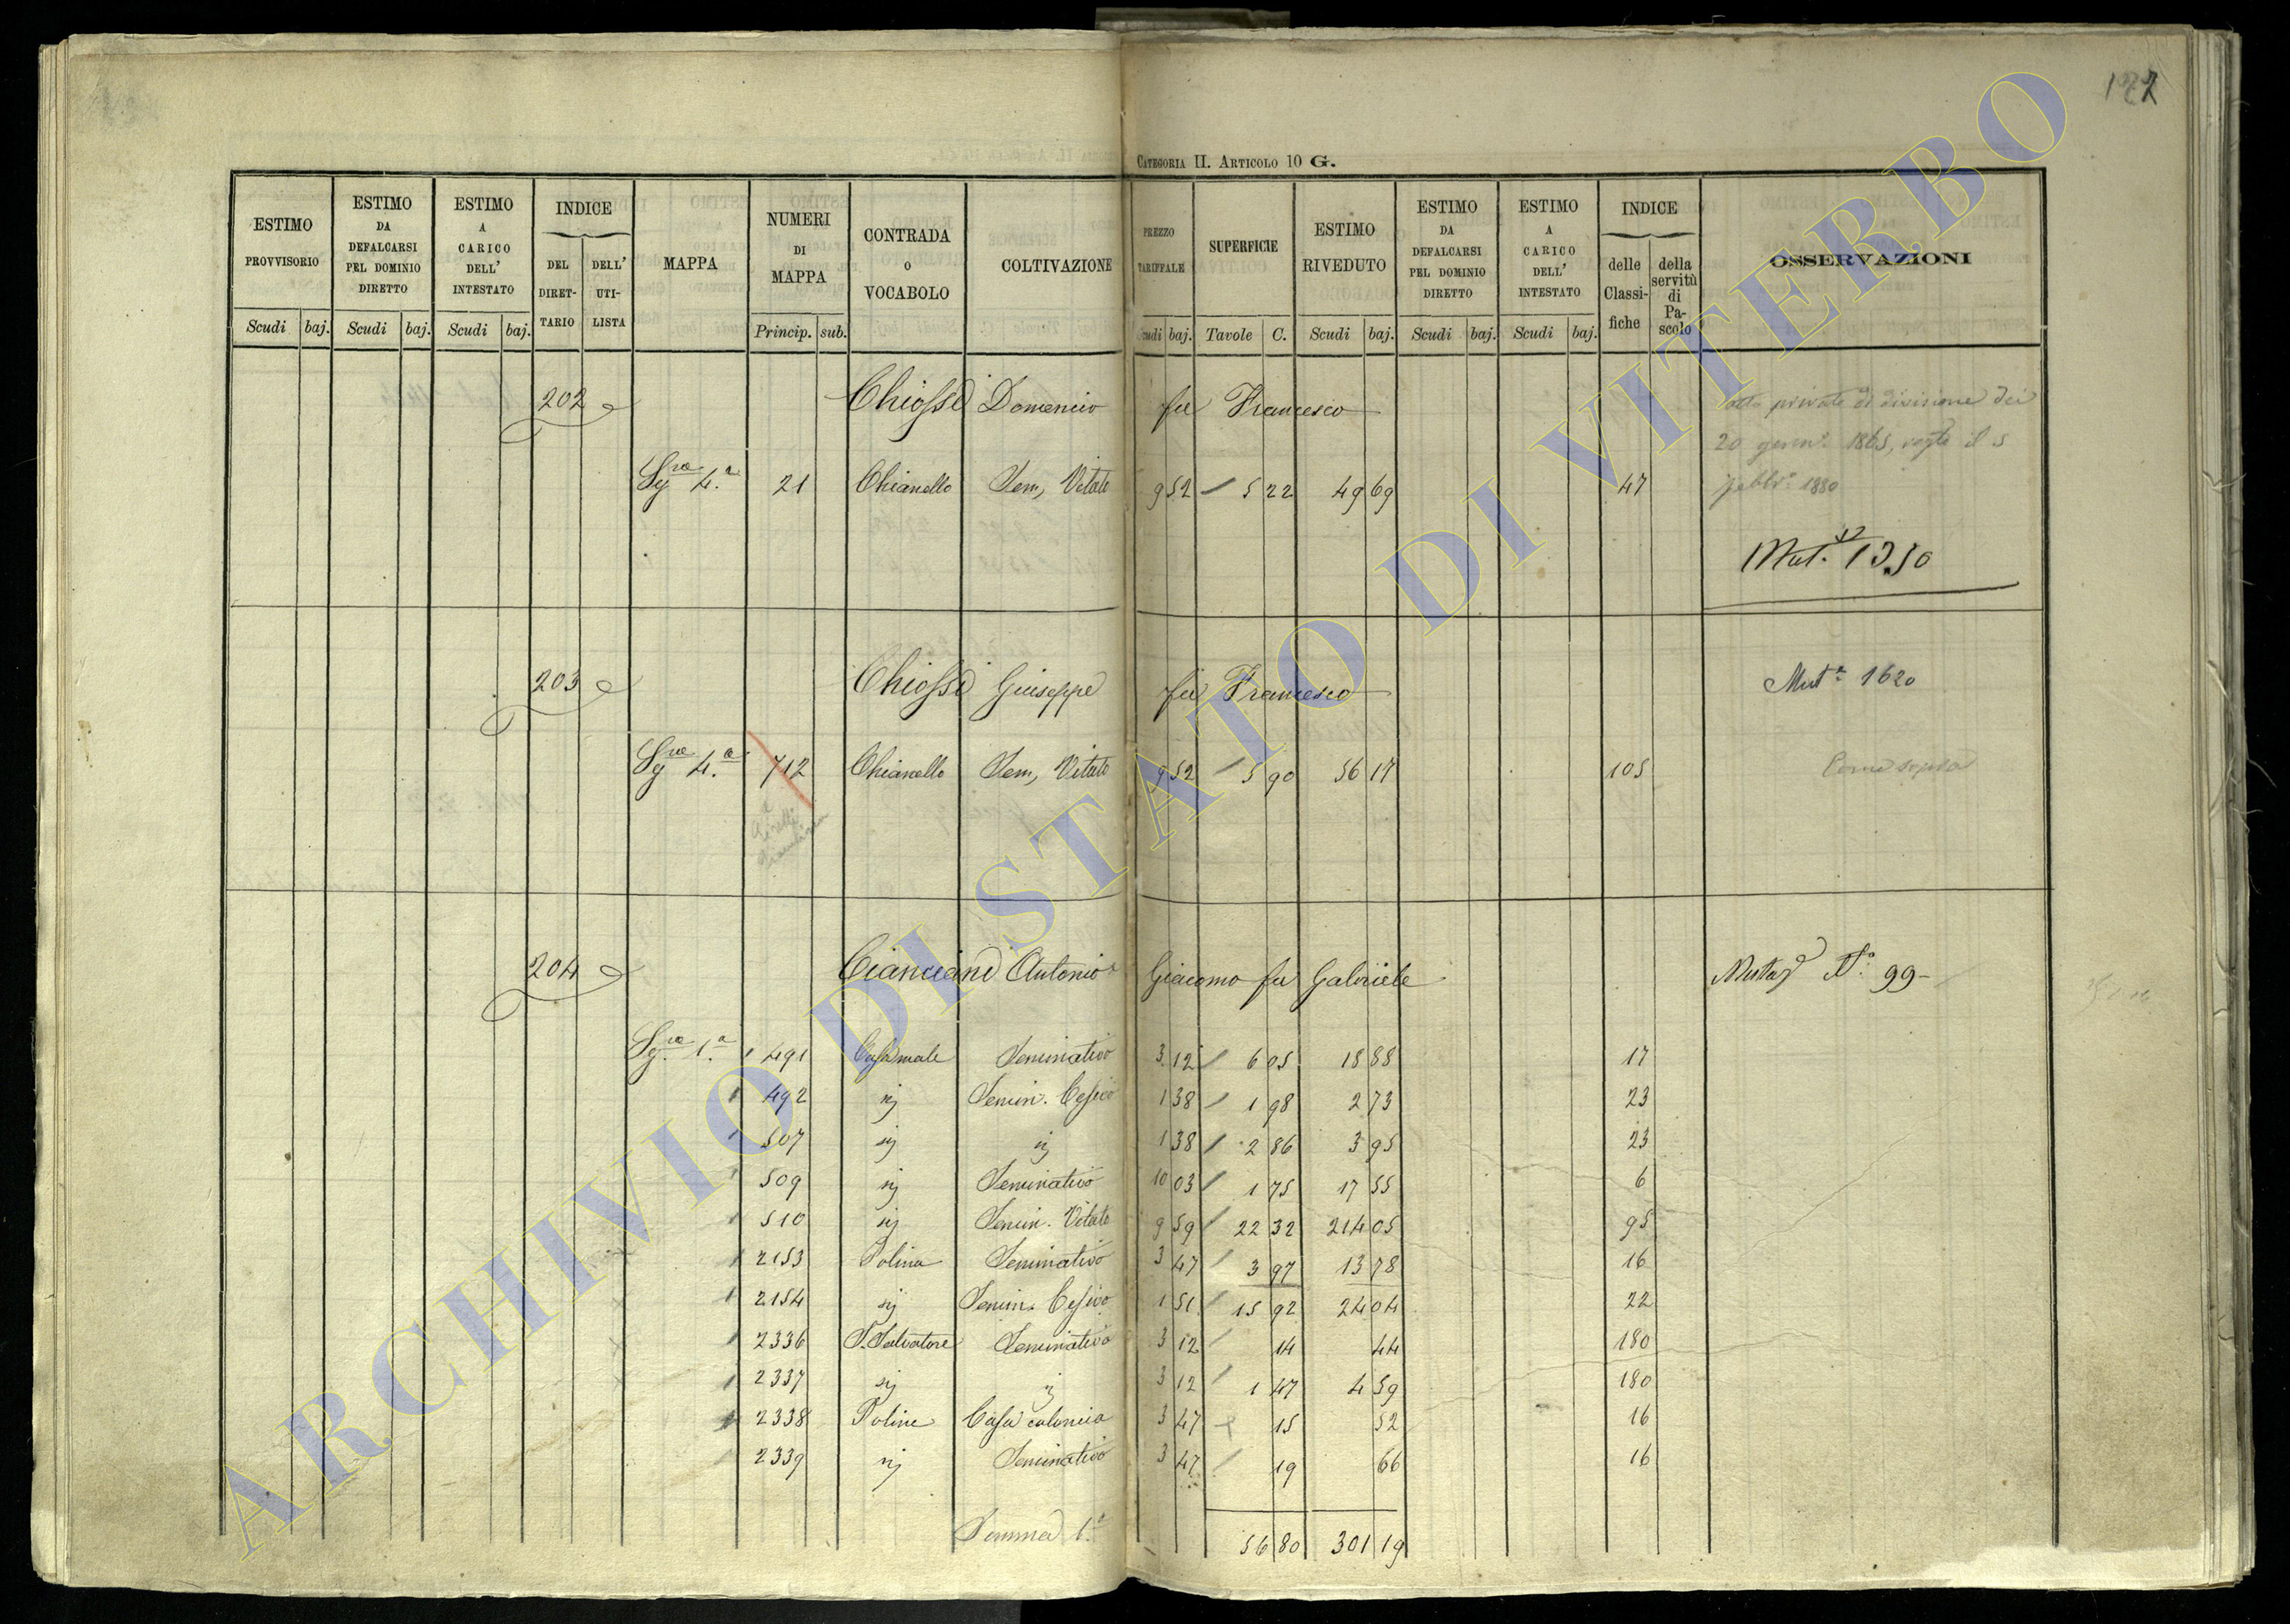 CATEGORIA II. ARTICOLO 10 G.
ESTIMO PROVVISORIO Scudi baj.
ESTIMO DA DEFALCARSI PEL DOMINIO DIRETTO Scudi baj.
ESTIMO A CARICO DELL' INTESTATO Scudi baj.
INDICE DEL DIRETTARIO DELL' UTILISTA
MAPPA
NUMERI DI MAPPA Princip. sub.
CONTRADA O VOCABOLO
COLTIVAZIONE
PREZZO TARIFFALE Scudi baj.
SUPERFICIE Tavole C.
ESTIMO RIVEDUTO Scudi baj.
ESTIMO DA DEFALCARSI PEL DOMINIO DIRETTO Scudi baj.
ESTIMO A CARICO DELL' INTESTATO Scudi baj.
INDICE delle Classifiche della servitù di Pascolo
OSSERVAZIONI
202 Chiossi Domenico fu Francesco
atto privato di divisione dei
20 genn.º 1865, regto il 5
febbr.º 1880
Sgne 4.a 21 Chianello Sem, Vitato 9 52 / 5 22 49 69 47
Mut. 1350
203 Chiossi Giuseppe fu Francesco Mutª 1620
Sgne 4.a 712 Chianello Sem, Vitato 9 52 / 5 90 56 17 105 Come sopra
204 Cianciani Antonio Giacomo fu Gabriele Mutaz Nº 99-
Sgne 1.a 1 491 Casamale Seminativo 3 12 / 6 05 18 88 17
1 492 ij Semin. Cesivo 1 38 / 1 98 2 73 23
1 507 ij ij 1 38 / 2 86 3 95 23
1 509 ij Seminativo 10 03 / 1 75 17 55 6
1 510 ij Semin. Vitato 9 59 / 22 32 214 05 95
1 2153 Polina Seminativo 3 47 / 3 97 13 78 16
1 2154 ij Semin. Cesivo 1 51 / 15 92 24 04 22
1 2336 S. Salvatore Seminativo 3 12 / 14 44 180
1 2337 ij ij 3 12 / 1 47 4 59 180
1 2338 Poline Casa colonica 3 47 15 52 16
1 2339 ij Seminativo 3 47 / 19 66 16
Somma 1.a 56 80 301 19
ARCHIVIO DI STATO DI VITERBO